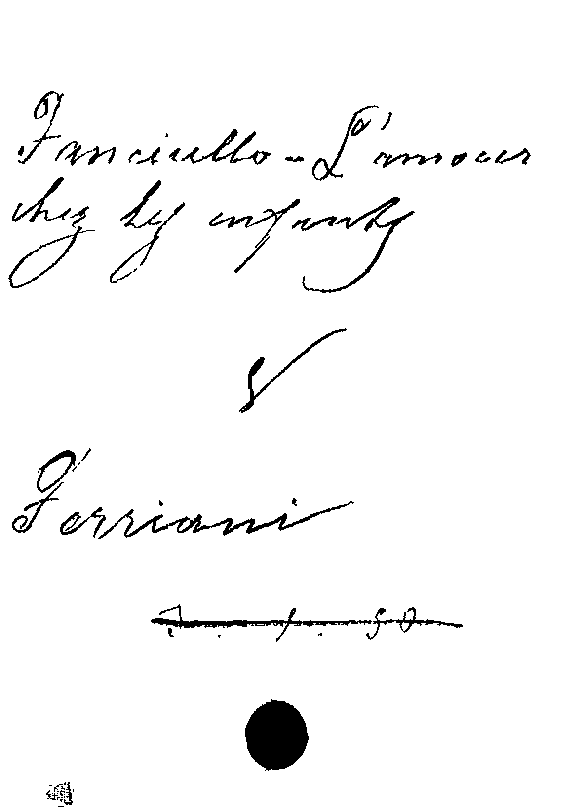 Fanciullo - L'amour
chez les enfants
V
Ferriani